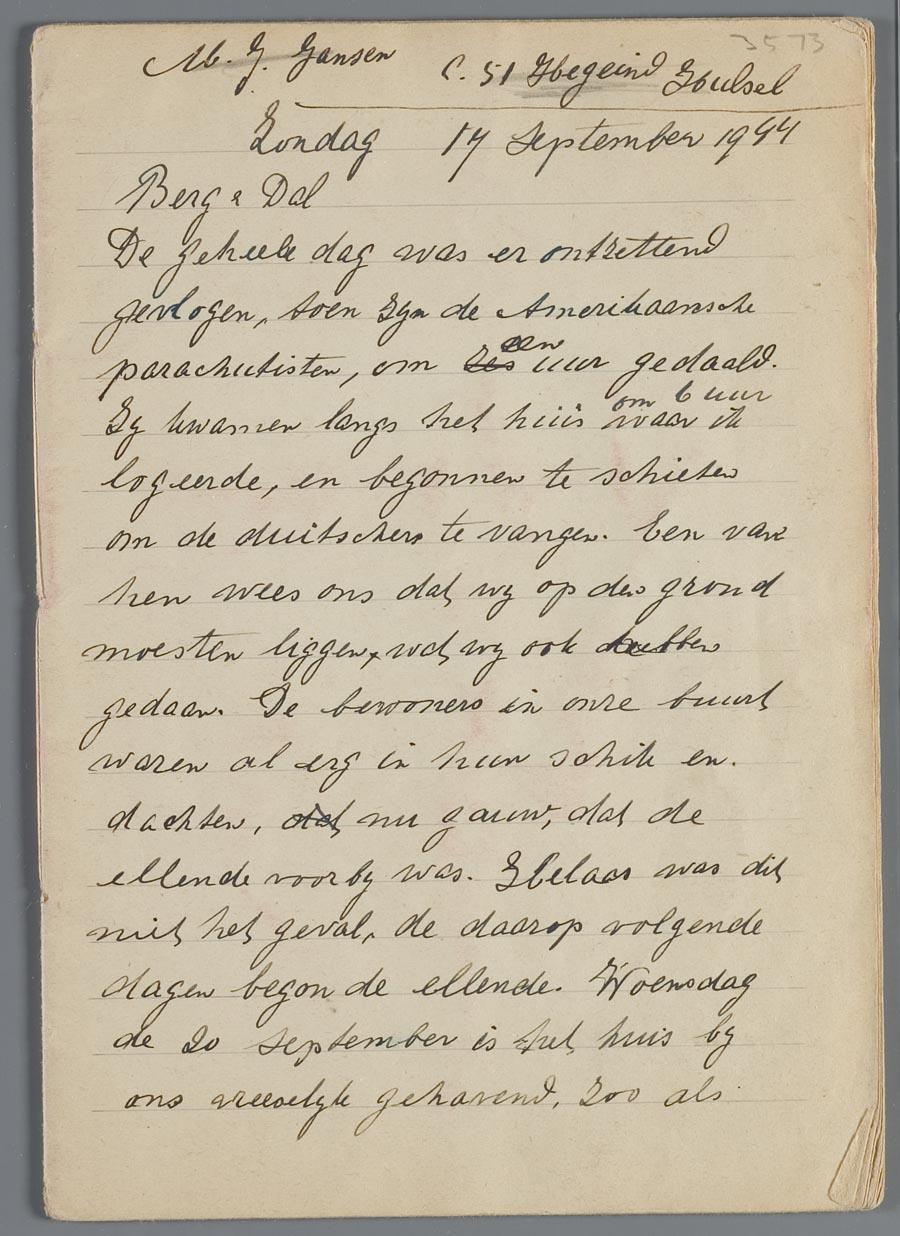 3573
M. J. Jansen C. 51 Hegeind Hulsel
Zondag 17 September 1944
Berg & Dal
De geheele dag was er ontzettend
gevlogen, toen zyn de Amerikaansche
parachutisten, om zes een uur gedaald.
Zy kwamen langs het huis waar ik om 6 uur
logeerde, en begonnen te schieten
om de duitschers te vangen. Een van
hen wees ons dat wy op den grond
moesten liggen, wat wy ook hebben
gedaan. De bewoners in onze buurt
waren al erg in hun schik en.
dachten, dat nu gauw, dat de
ellende voorby was. Helaas was dit
niet het geval, de daarop volgende
dagen begon de ellende. Woensdag
de 20 September is het huis by
ons vreeselyk gehavend, zoo als